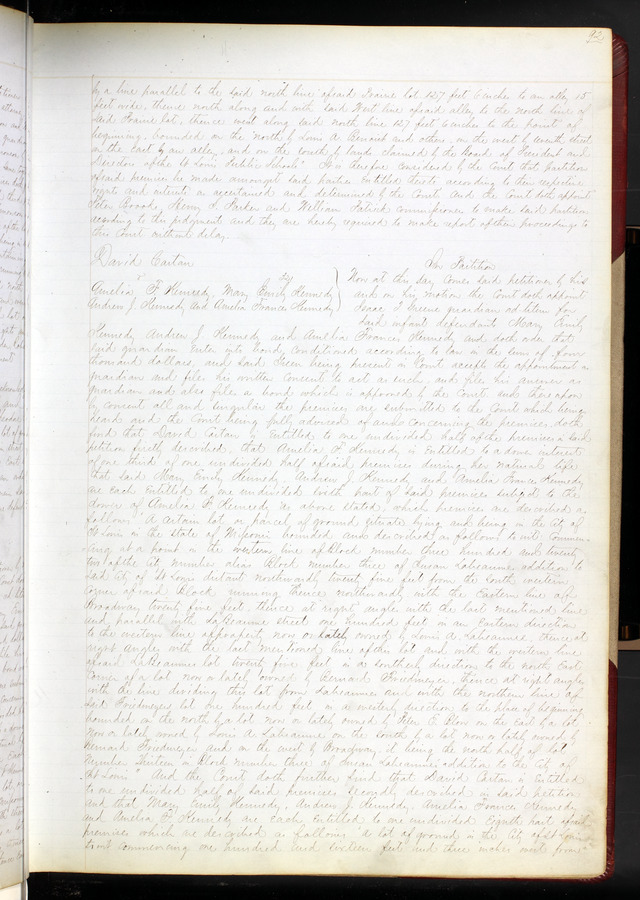 92
by a line parallel to the said north line afsaid Frame lot 127 feet 6 inches to an alley 15
feet wide, thence north along and with said West line afsaid alley to the North line of
said Frame lot, thence west along said north line 127 feet 6 inches to the point of
beginning, bounded on the North by Louis A Benoist and others, on the west by seventh street
on the east by an alley, and on the south by lands claimed by the Board of President and
Directors of the St Louis Public Schools" It is therefore considered by the Court that partition
afsaid premises be made amongst said parties entitled thereto according to their respective
rights and interests as ascertained and determined by the Court And the Court doth appoint
Peter Brooks, Henry S. Parker and William Patrick commissioners to make said partition
according to this judgment and they are hereby required to make report of their proceedings to
this Court without delay.
David Cartan
vs
Amelia F Kennedy, Mary Emily Kennedy
Andrew J. Kennedy and Amelia Frances Kennedy
In Partition
Now at this day comes said petitioner by his
and on his motion the Court doth appoint
Isaac T Greene guardian ad litem for
said infant defendants Mary Emily
Kennedy Andrew J Kennedy and Amelia Frances Kennedy and doth order that
said guardian enter into bond conditioned according to law in the sum of four
thousand dollars, and said Green being present in Court accepts the appointment as
guardian and files his written consent to act as such, and files his answer as
guardian and also files a bond which is approved by the Court and thereupon
by consent all and singular the premises are submitted to the Court which being
heard and the Court being fully advised of and concerning the premises, doth
find that David Cartan is entitled to one undivided half of the premises in said
petition firstly described, that Amelia F Kennedy is entitled to a dower interest
of one third of one undivided half afsaid premises during her natural life
that said Mary Emily Kennedy Andrew J Kennedy and Amelia France Kennedy
are each entitled to one undivided sixth part of said premises subject to the
dower of Amelia F Kennedy as above stated, which premises are described as
follows: A certain lot or parcel of ground situate lying and being in the City of
St Louis in the state of Missouri bounded and described as follows to wit: Commen-
cing at a point in the western line of Block number three hundred and twenty
two of the City number, alias Block number three of Susan Labeaume addition to
said City of St Louis distant northwardly twenty five feet from the south western
corner afsaid Block running thence northwardly with the Eastern line of
Broadway twenty five feet, thence at right angles with the last mentioned line
and parallel with Labeaume street one hundred feet in an Eastern direction
to the western line of property now or lately owned by Louis A. Labeaume, thence at
right angles with the last mentioned line of this lot and with the western line
afsaid Labeaumes lot twenty five feet in a southerly direction to the north East
corner of a lot now or lately owned by Bernard Friedmeyer, thence at right angles
with the line dividing this lot from Labeaumes and with the northern line of
said Friedmeyers lot one hundred feet in a westerly direction to the place of beginning
bounded on the north by a lot now or lately owned by Peter E. Blow on the East by a lot
now or lately owned by Louis A Labeaume on the South by a lot now or lately owned by
Bernard Friedmeyer and on the west by Broadway, it being the north half of lot
Number sixteen in Block number three of Susan Labeaumes addition to the City of
St Louis" And the Court doth further find that David Cartan is Entitled
to one undivided half of said premises secondly described in said petition
and that Mary Emily Kennedy, Andrew J. Kennedy, Amelia France Kennedy
and Amelia F Kennedy are each entitled to one undivided Eighth part afsaid
premises which are described as follows "a lot of ground in the City of St Louis
to wit commencing one hundred and sixteen feet and three inches north from